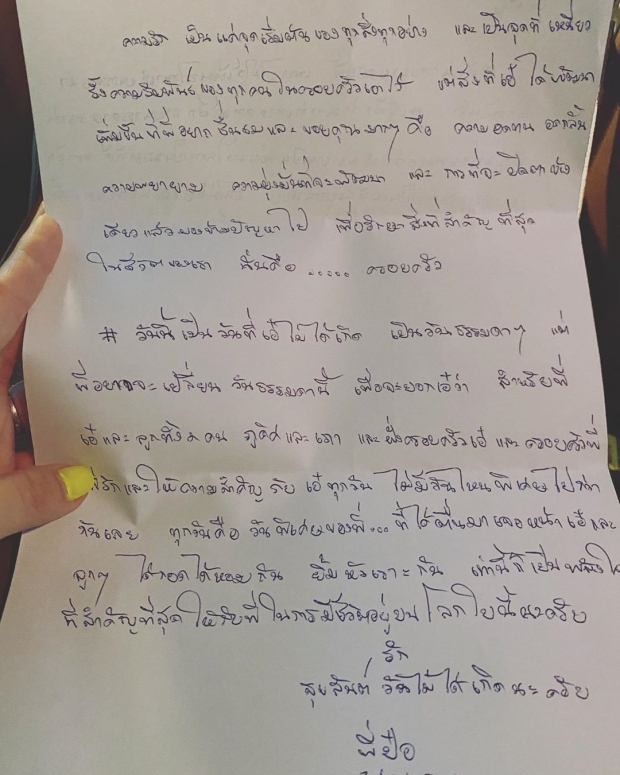 ความรัก เป็นแค่จุดเริ่มต้นของทุกสิ่งทุกอย่าง และเป็นจุดที่เหนี่ยว
รั้งความสัมพันธ์ของทุกคนในครอบครัวเอาไว้ แต่สิ่งที่เอ๋ได้พัฒนา
เพิ่มขึ้นที่พี่อยากชื่นชมและขอบคุณมากๆ คือ ความอดทน อดกลั้น
ความพยายาม ความมุ่งมั่นที่จะพัฒนา และการที่จะปิดตาข้าง
เดียวแล้วมองข้ามปัญหาไป เพื่อรักษาสิ่งที่สำคัญที่สุด
ในชีวิตของเรา นั่นคือ ..... ครอบครัว
# วันนี้เป็นวันที่เอ๋ไม่ได้เกิด เป็นวันธรรมดาๆ แต่
พี่อยากจะเปลี่ยนวันธรรมดานี้ เพื่อจะบอกเอ๋ว่า สำหรับพี่
เอ๋และลูกทั้ง ๒ คน ภูดิศและเภา และฝั่งครอบครัวเอ๋และครอบครัวพี่
พี่รักและให้ความสำคัญกับเอ๋ทุกวัน ไม่มีวันไหนพิเศษไปกว่า
กันเลย ทุกวันคือวันพิเศษของพี่... ที่ได้ตื่นมาเจอหน้าเอ๋และ
ลูกๆ ได้กอดได้หอมกัน ยิ้มหัวเราะกัน เท่านี้ก็เป็นพลังใจ
ที่สำคัญที่สุดให้กับพี่ในการมีชีวิตอยู่บนโลกใบนี้นะครับ
รัก
สุขสันต์วันไม่ได้เกิดนะครับ